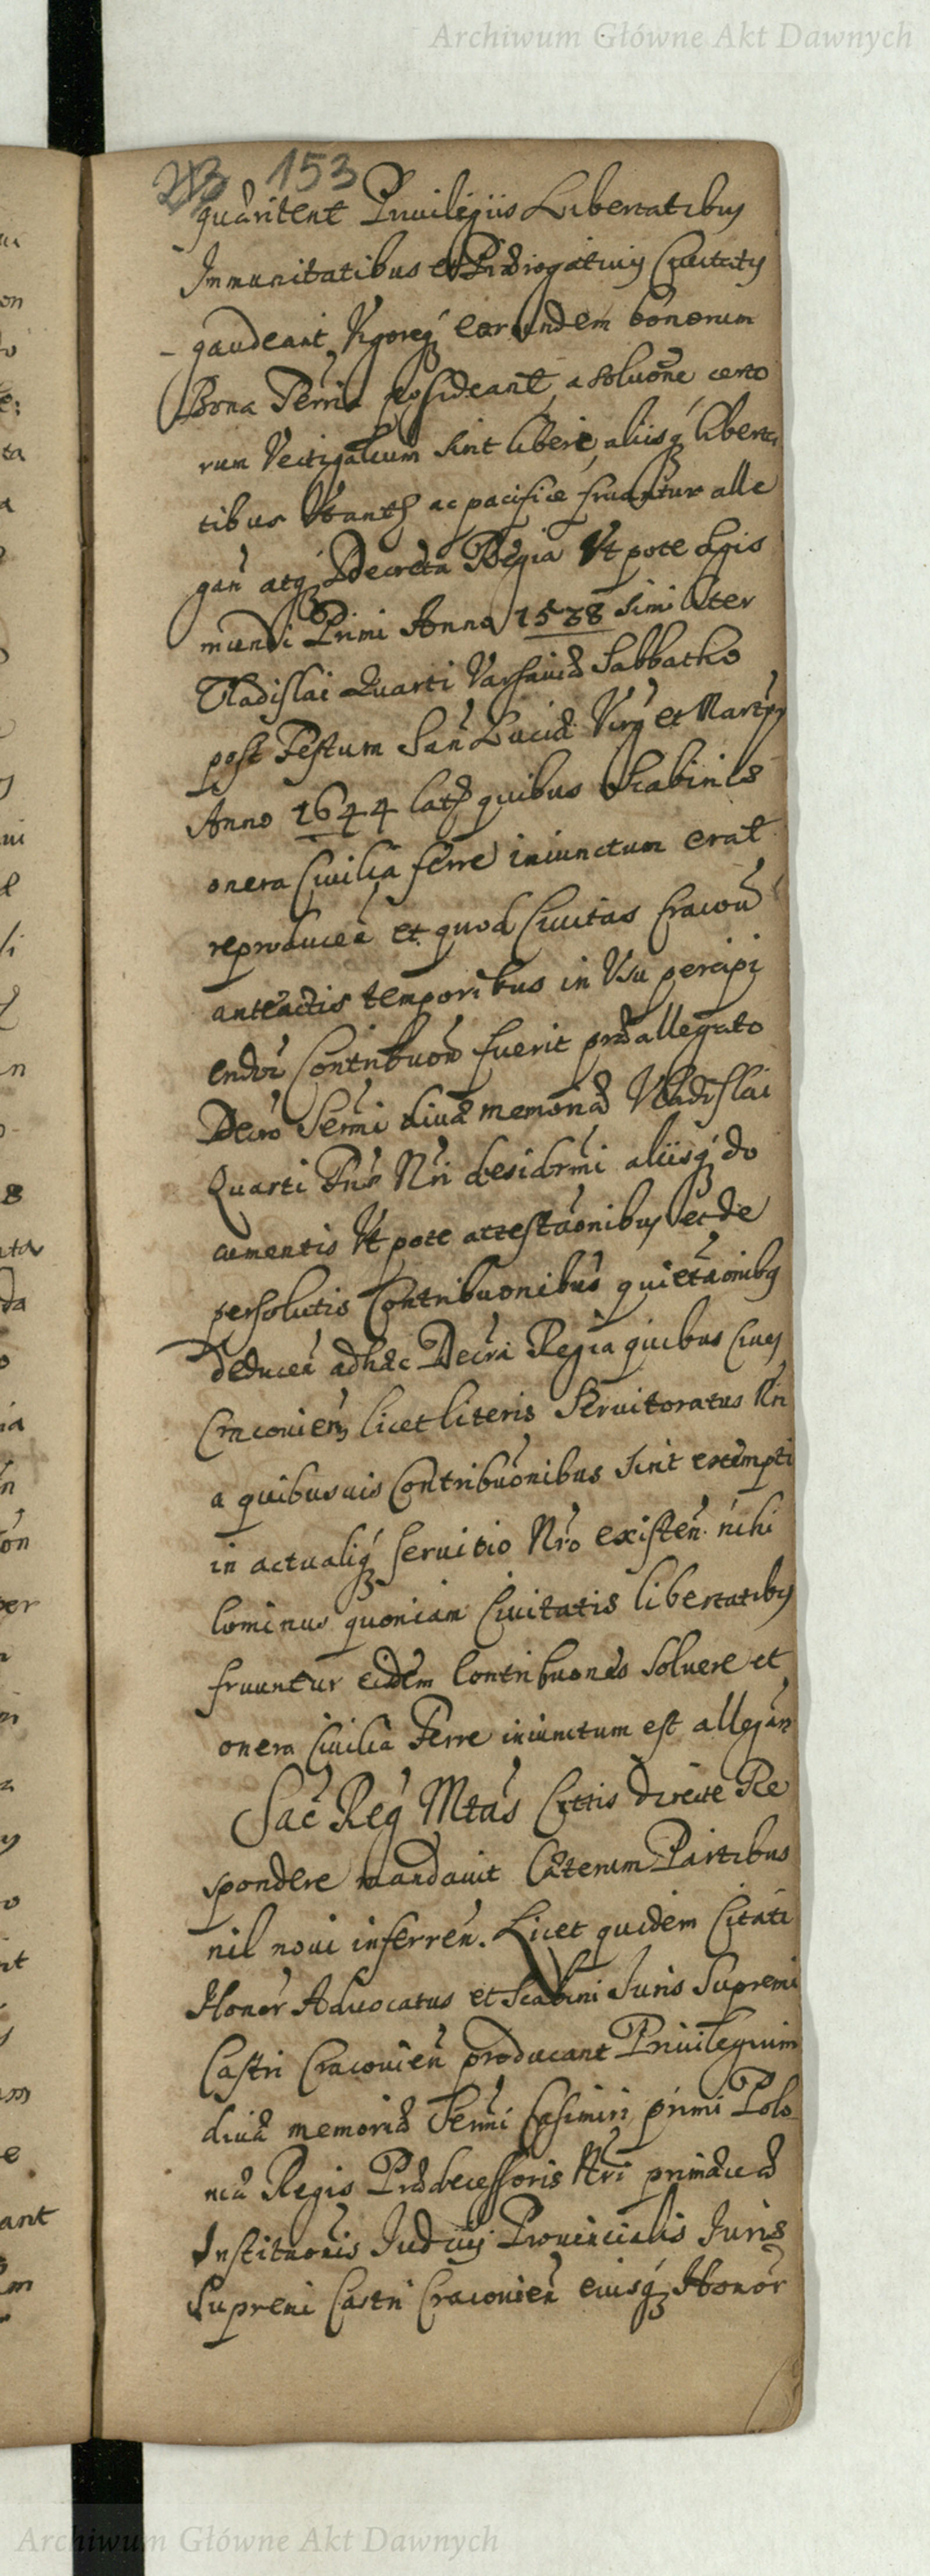 Archiwum Główne Akt Dawnych
213 153
quaritent Privilegiis Libertatibus
Immunitatibus et Prærogativis Civitatis
gaudeant, Vigoreq́ earundem bonorum
Bona Terris possideant, a soluōne certo
rum Vectigalium sint liberi, aliisq́ liberta
tibus Utantꝛ ac pacificè fruantur alle
gań atq́ Decreta Regia Ut pote Sigis
mundi Primi Anno 1538 similiter
Vladislai Quarti Varsaviæ Sabbatho
post Festum Sań Luciæ Virg et Martyr
Anno 1644 latꝭ quibus Scabinis
onera Civilia ferre iniunctum erat
reproduceń et quod Civitas Cracoń
anteactis temporibus in Usu percipi
endoꝝ Contribuoń fuerit præallegato
Decro Sermi divæ memoriæ Vladislai
Quarti Frís Nri desidrmi aliisq́ do
cumentis Ut pote attestaōnibus et de
persolutis Contribuonibus quietaōnibꝫ
deduceń adhæc Decrá Regia quibus Cives
Cracovień, licet literis Servitoratus Nri
a quibusuis Contribuōnibus sint exempti
in actualiq́ servitio Nro existeń nihi
lominus quoniam Civitatis libertatibus
fruuntur eidem Contribuones Solvere et
onera Civilia Ferre iniunctum est allegań
Sać Reg Mtás Cittis directe Re
spondere mandavit Cæterum Partibus
nil novi inferreń. Licet quidem Citáti
Honor Advocatus et Scabini Juris Supremi
Castri Cracovień producant Privilegium
divæ memoriæ Sermi Casimiri primi Polo
niæ Regis Prædecessoris Nri primævæ
Institutionis Judicij Provincialis Juris
Supremi Castri Cracovień eiusq́ Honor
Archiwum Główne Akt Dawnych